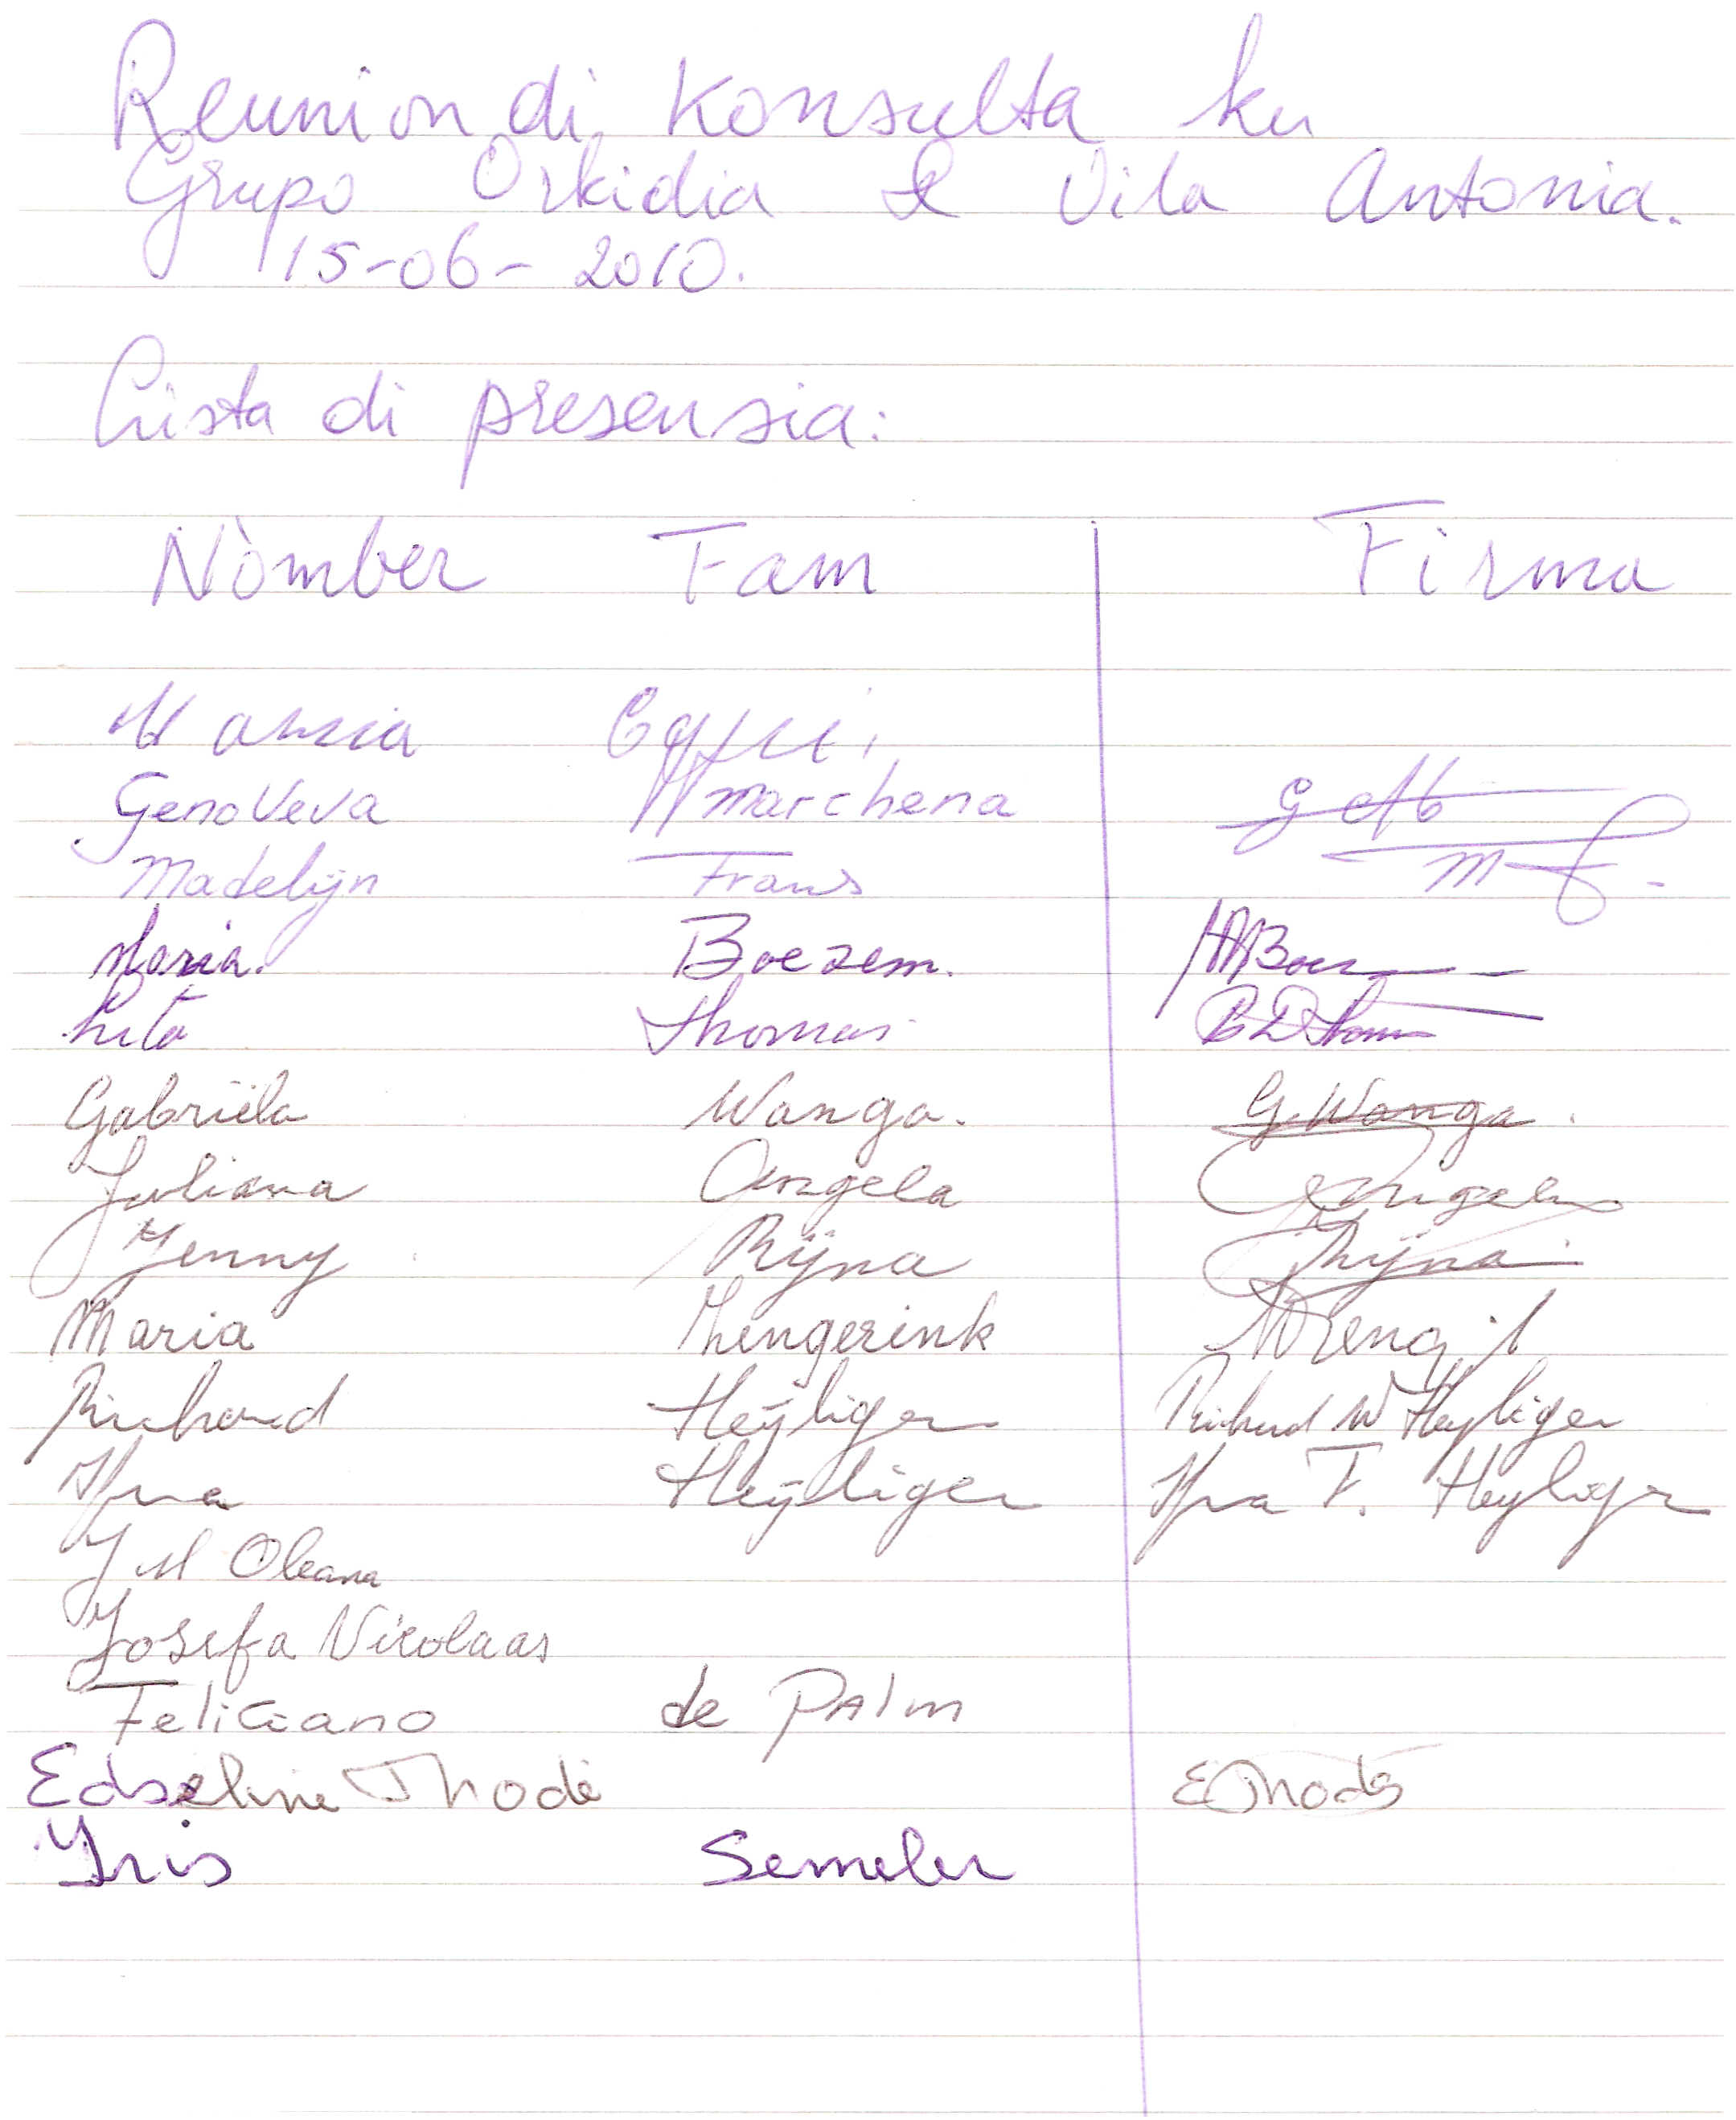 Reunion di Konsulta ku
Grupo Orkidia & Vila Antonia.
15-06-2010.
Lista di presensia:
Nòmber Fam Firma
Marcia
Genoveva Marchena
Madelijn Frans
Maria. Boezem.
Lita Thomas
Gabriëla Wanga. G. Wanga.
Juliana Angela Angela
Jenny Rijna Rijna
Maria Lengerink
Richard Heyliger Richard W Heyliger
Heyliger T. Heyliger
Oleana
Josefa Nicolaas
Feliciano de Palm
Edseline Thodé EThodé
Iris Semeler